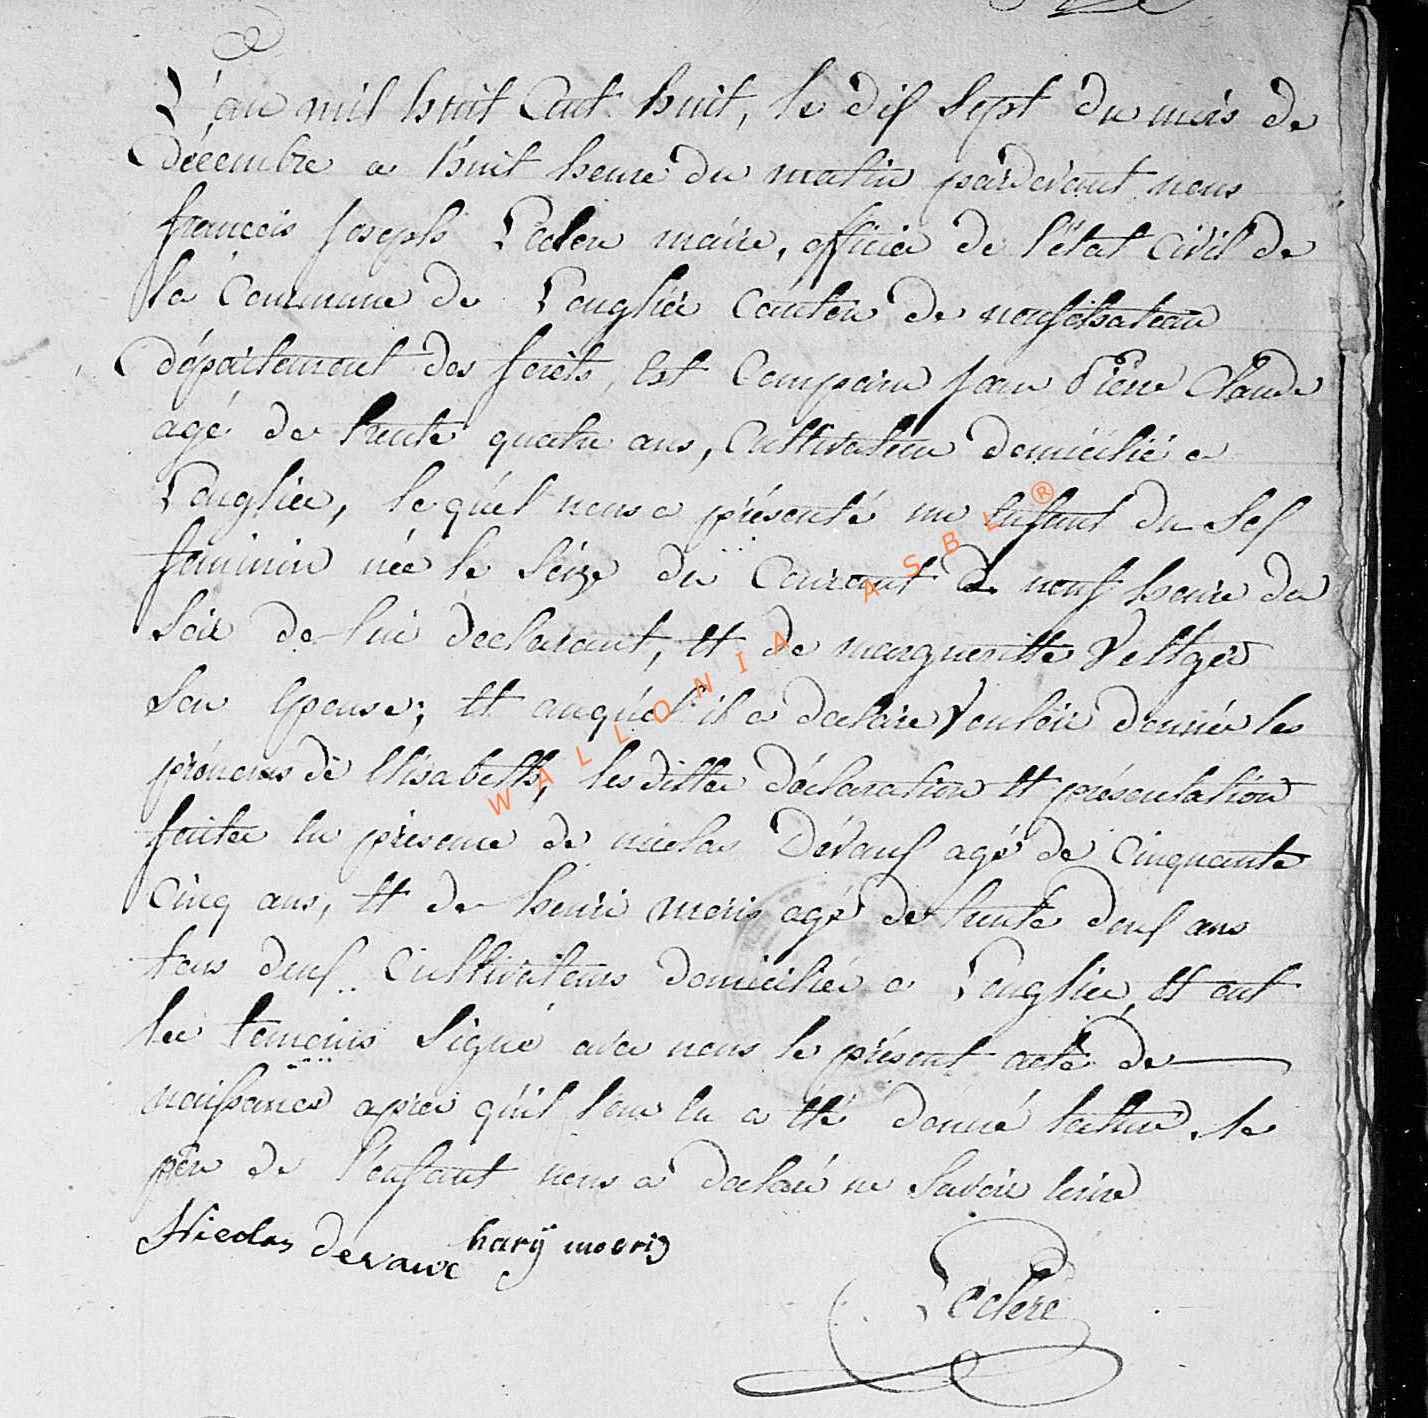 L'an mil huit Cent huit, le dix Sept du mois de
décembre a huit heure du matin pardevant nous
francois Joseph Leclere maire, officier de l'état Civil de
la Commune de Longlier Canton de neufchateau
département des forêts, Est Comparu Jean Pierre Claude
agé de trente quatre ans, Cultivateur domicilié a
Longlier, le quel nous a présenté un Enfant du Sex
feminin née le Seize du Courant a neuf heure du
Soir de lui déclarant, Et de margueritte Veltger
Son Epouse; Et auquel il a declaré Vouloir donner les
prénoms de Elisabeth, les ditte déclaration Et présentation
faitte En présence de nicolas Dévaux agé de Cinquante
Cinq ans, Et de henri moris agé de trente deux ans
tous deux Cultivateurs domicilié a Longlier, Et ont
les temoins Signé avec nous le présent acte de
naissance apres qu'il leur En a Eté donné lecture, le
père de l'enfant nous a declaré ne Savoir Ecrire
Nicolas devaux harÿ moeris
Leclere
WALLONIA ASBL ®